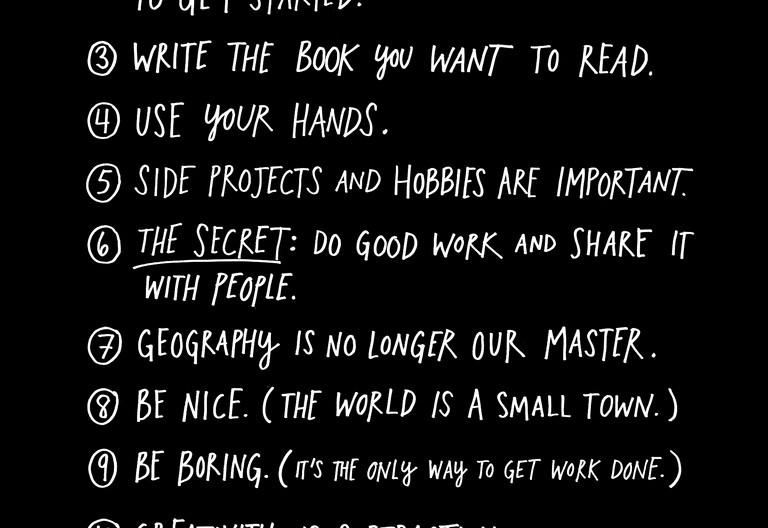 TO GET STARTED.
③ WRITE THE BOOK YOU WANT TO READ.
④ USE YOUR HANDS.
⑤ SIDE PROJECTS AND HOBBIES ARE IMPORTANT.
⑥ THE SECRET: DO GOOD WORK AND SHARE IT
WITH PEOPLE.
⑦ GEOGRAPHY IS NO LONGER OUR MASTER.
⑧ BE NICE. (THE WORLD IS A SMALL TOWN.)
⑨ BE BORING. (IT'S THE ONLY WAY TO GET WORK DONE.)
CREATIVITY IS SUBTRACTION.